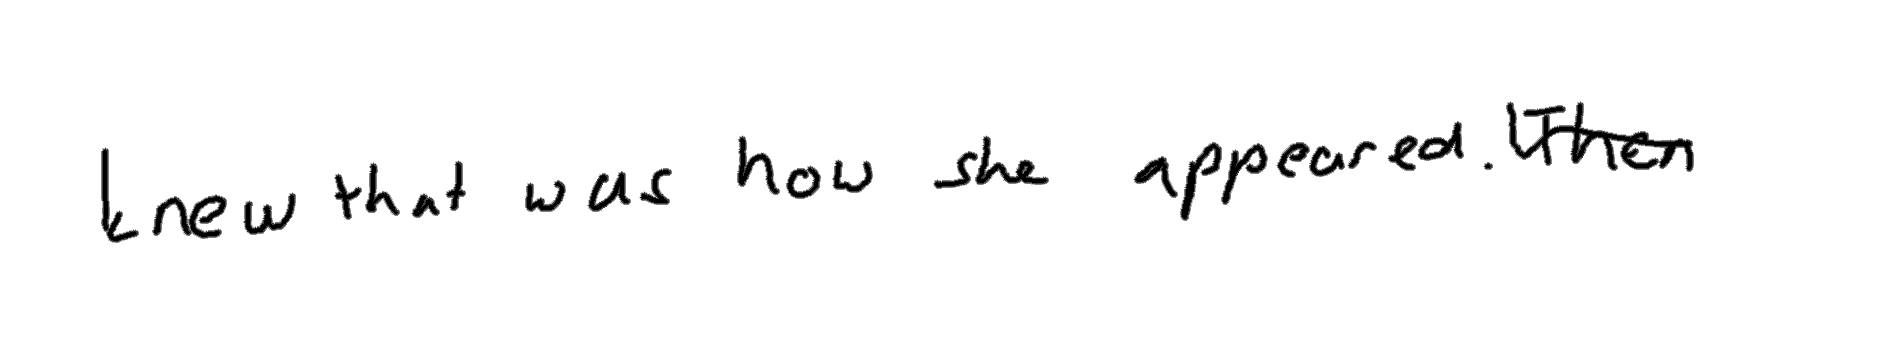 knew that was how she appeared. Then